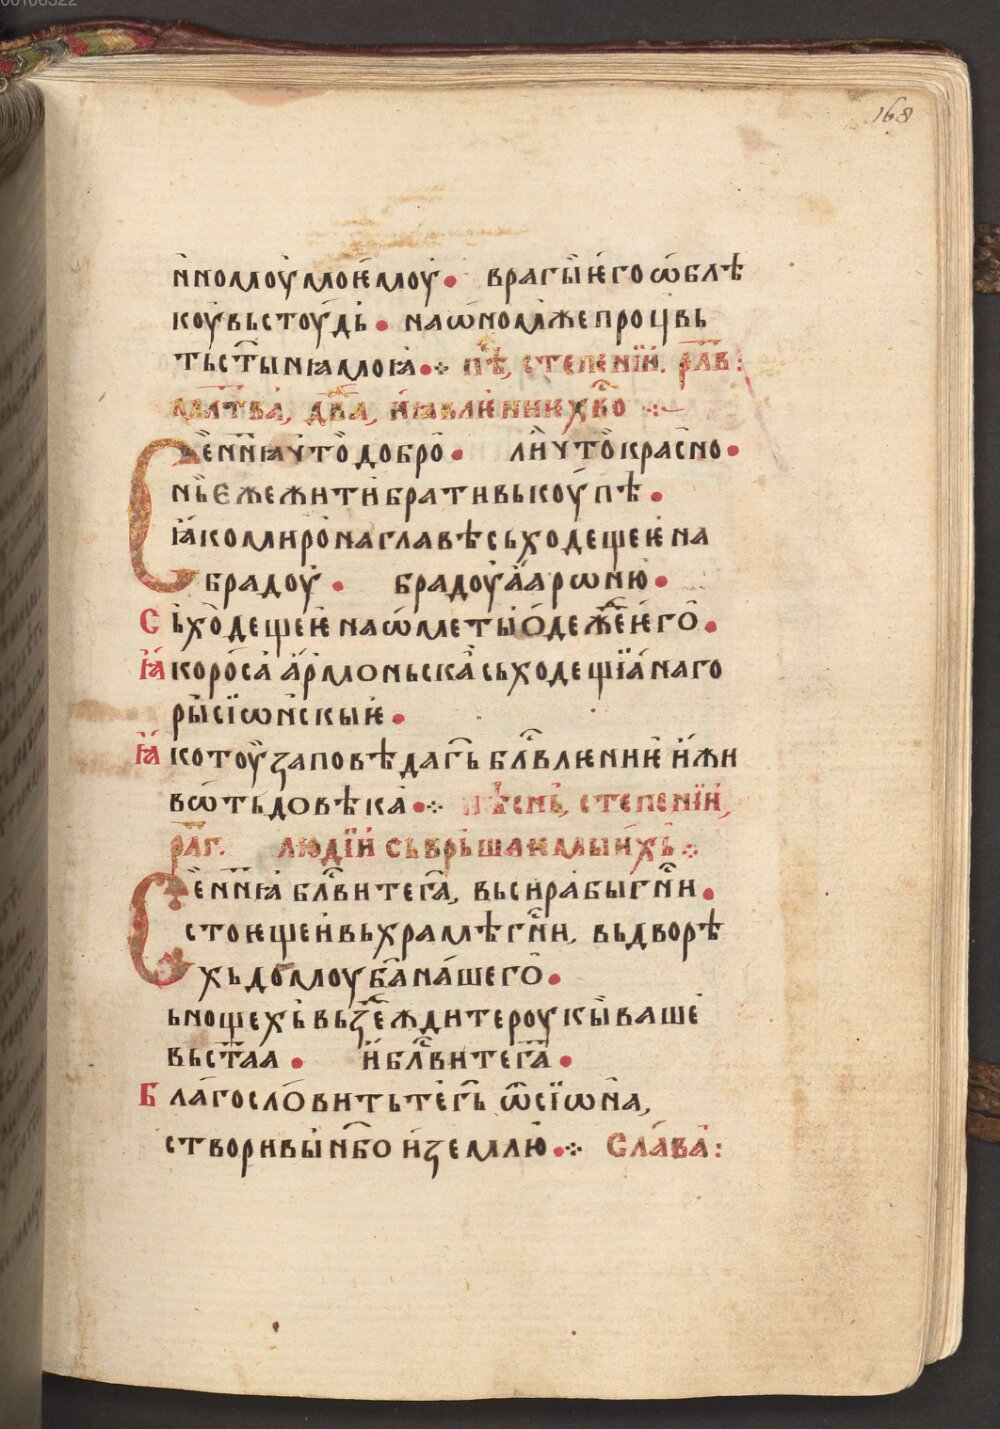 00106322
168
и҆номоу҆ моѥ҆моу҆ • врагы̀ ѥ҆го ѡ҆блѣ
коу҆ вь стоу҆дь • на ѡ҆номже процвь
тьст҃ыни ꙗ моꙗ •⁘ пѣ̑, степенїи҆. рл҃в :
мл҃тва, дв҃а, ꙗ҆влѥнии хв҃о ⁘
Сѐ н҃ниꙗ что̀ добро̀ • ли҆ что̀ красно •
нь̀ ѥже жити братиꙗ вькоу҆пѣ •
ꙗ҆ко миро на главѣ сьходещеѥ на
брадоу҆ • брадоу҆ а҆арѡню •
сьхо̀дещеѥ на ѡ҆меты ѻ҆деже ѥ҆го̀ •
ꙗ҆ко роса а҆рмоньска҆ сьходещїа на го
ры сїѡ҆нскыѥ •
ꙗ҆ко тоу҆ заповѣда гс҃ь бл҃влѥниѥ и҆ жи
вѡ҆ть до вѣка •⁘ пѣснь, степенїи҆,
рл҃г. людїи҆ сьврьшаѥмыи҆хь ⁘
Сѐ н҃нꙗ бл҃вите га҃, вьси раби гн҃и •
стоѥщеи вь храмѣ гн҃и, вь дворѣ
хь домоу ба҃ нашего̀ •
ь нощехь вьздеждите роукы̀ ваше
вь ст҃аа • и҆ бл҃вите га҃ •
Благословить те гь҃ ѿ сїѡ҆на,
створивы нб҃о и҆ землю •⁘ Слава :